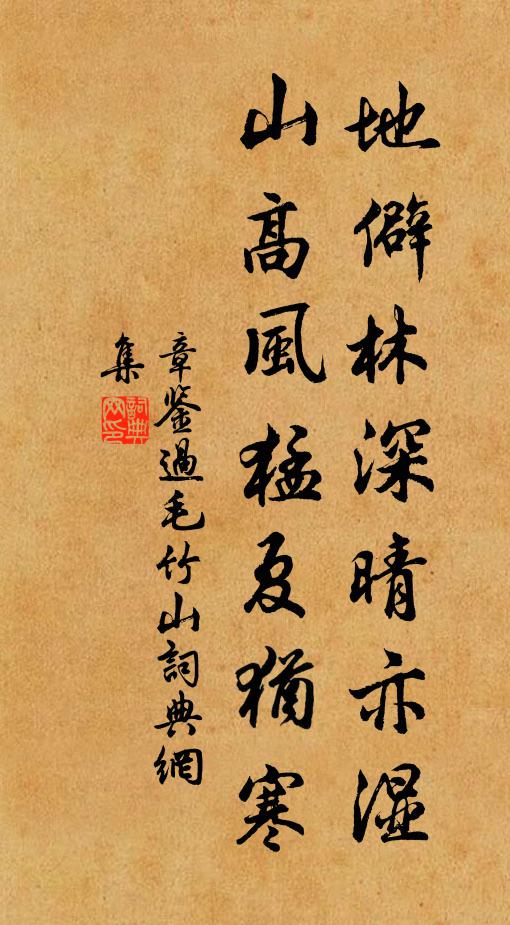 地僻林深晴亦湿
山高風猛夏猶寒
章鉴過毛竹山詞典網
集
詞典網印